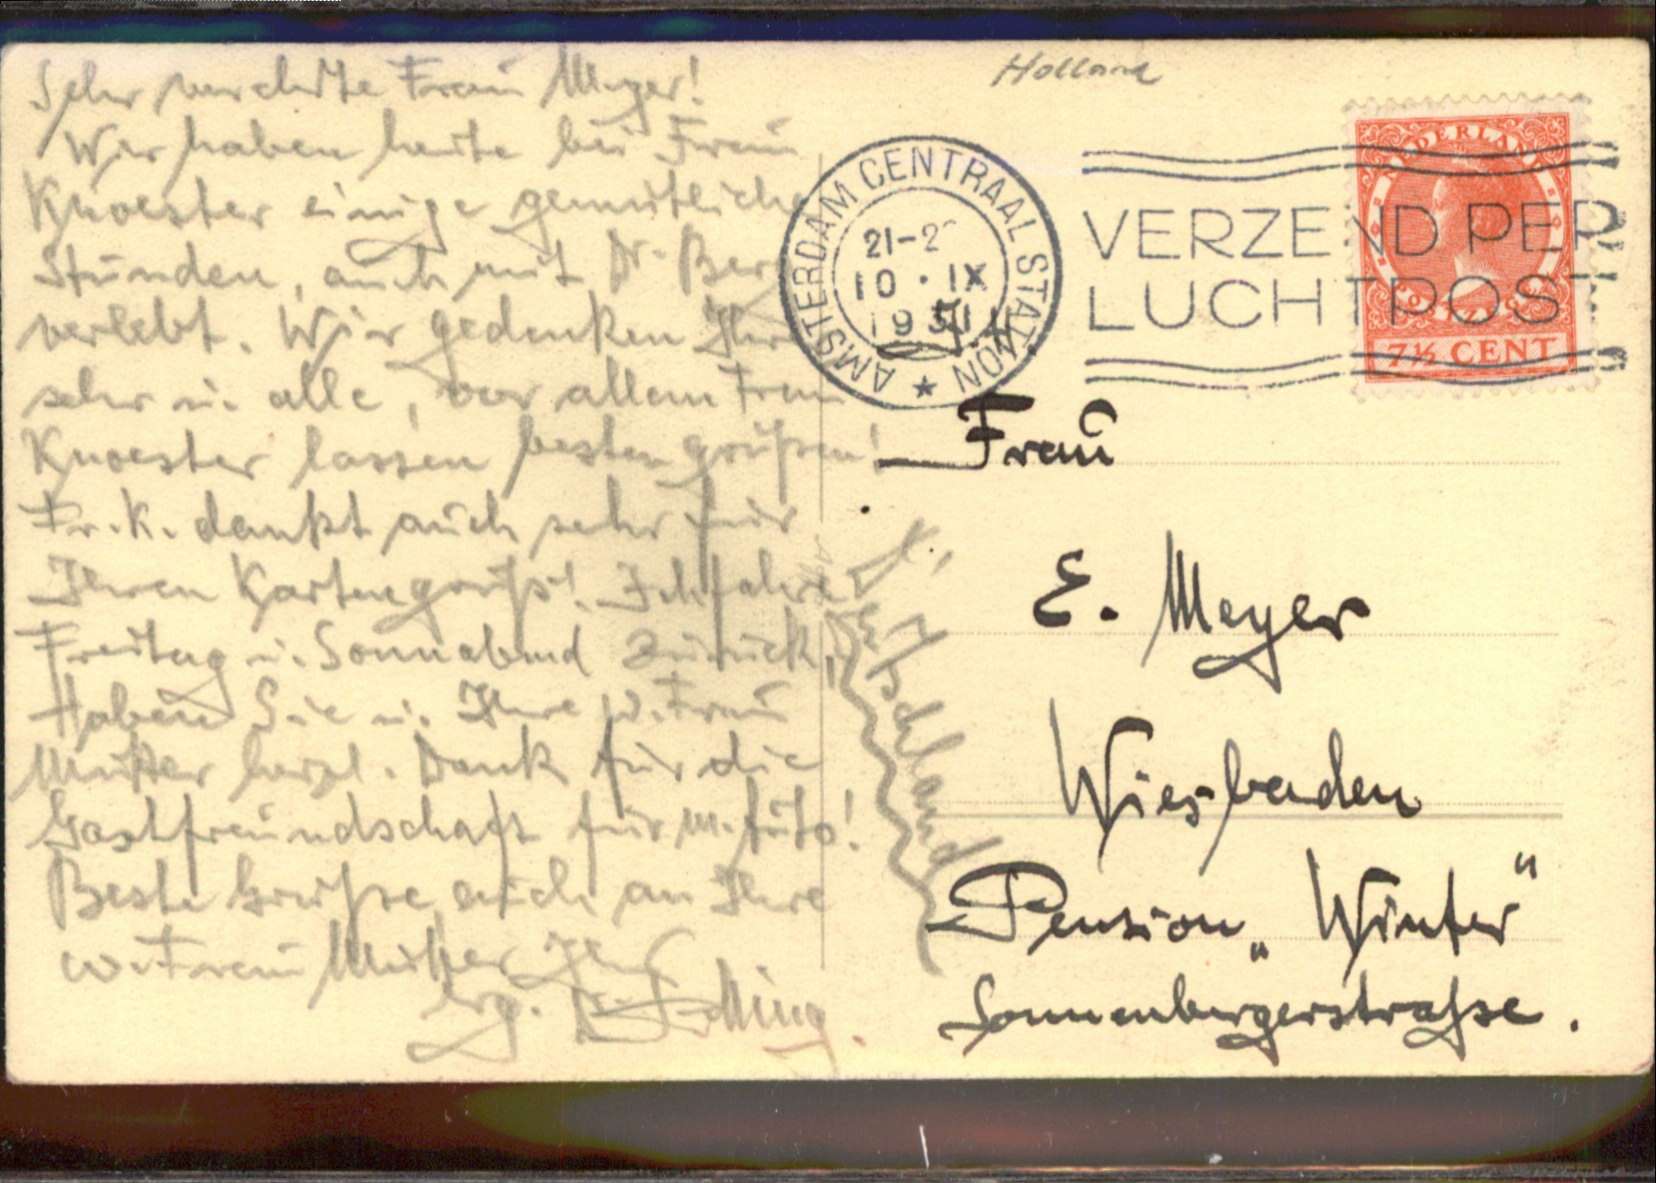 Sehr verehrte Frau Meyer!
Wir haben heute bei Frau
Knoester einige gemütliche
Stunden, auch mit Dr. Berg
verlebt. Wir gedenken Ihrer
sehr u. alle, vor allem Frau
Knoester lassen bestens grüßen!
Fr. K. dankt auch sehr für
Ihren Kartengruß! Ich fahre
Freitag u. Sonnabend zurück,
Haben Sie u. Ihre w. Frau
Mutter herzl. Dank für die
Gastfreundschaft für m. Auto!
Beste Grüße auch an Ihre
w. Frau Mutter Ihr
erg. Dr.
Holland
AMSTERDAM CENTRAAL STATION
10 · IX
VERZEND PER
LUCHTPOST
NEDERLAND
7½ CENT
Frau
E. Meyer
Wiesbaden
Pension „Winter"
Sonnenburgerstraße.
Deutschland